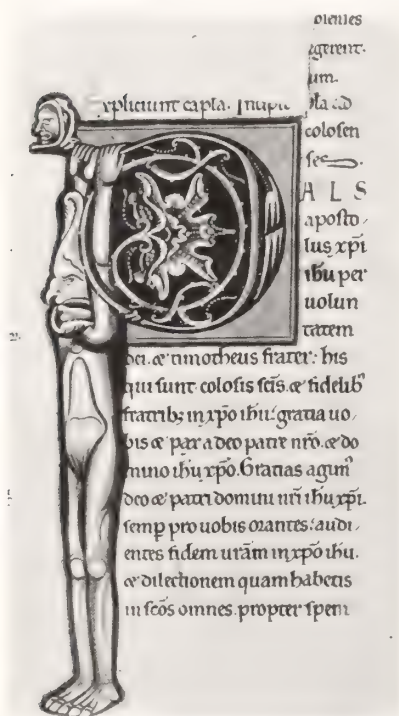 olentes
egerent.
um.
expliciunt capła. Incipit
ad
colosen
ses
A L S
aposto
lus xp̄i
ihū per
uolun
tatem
dei. & timotheus frater: his
qui sunt colosis sc̄is. & fidelib'
fratrib; in xp̄o ihū: gratia uo
bis & pax a deo patre nr̄o. & do
mino ihū xp̄o. Gratias agim'
deo & patri domini nr̄i ihū xp̄i.
semꝑ pro uobis orantes: audi
entes fidem ur̄am in xp̄o ihū.
& dilectionem quam habetis
in sc̄os omnes. propter spem